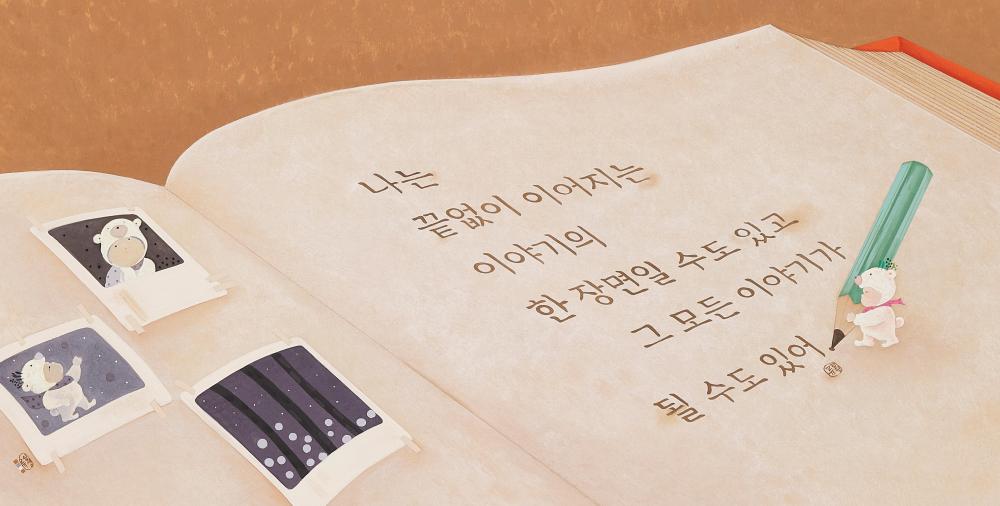 나는
끝없이 이어지는
이야기의
한 장면일 수도 있고
그 모든 이야기가
될 수도 있어